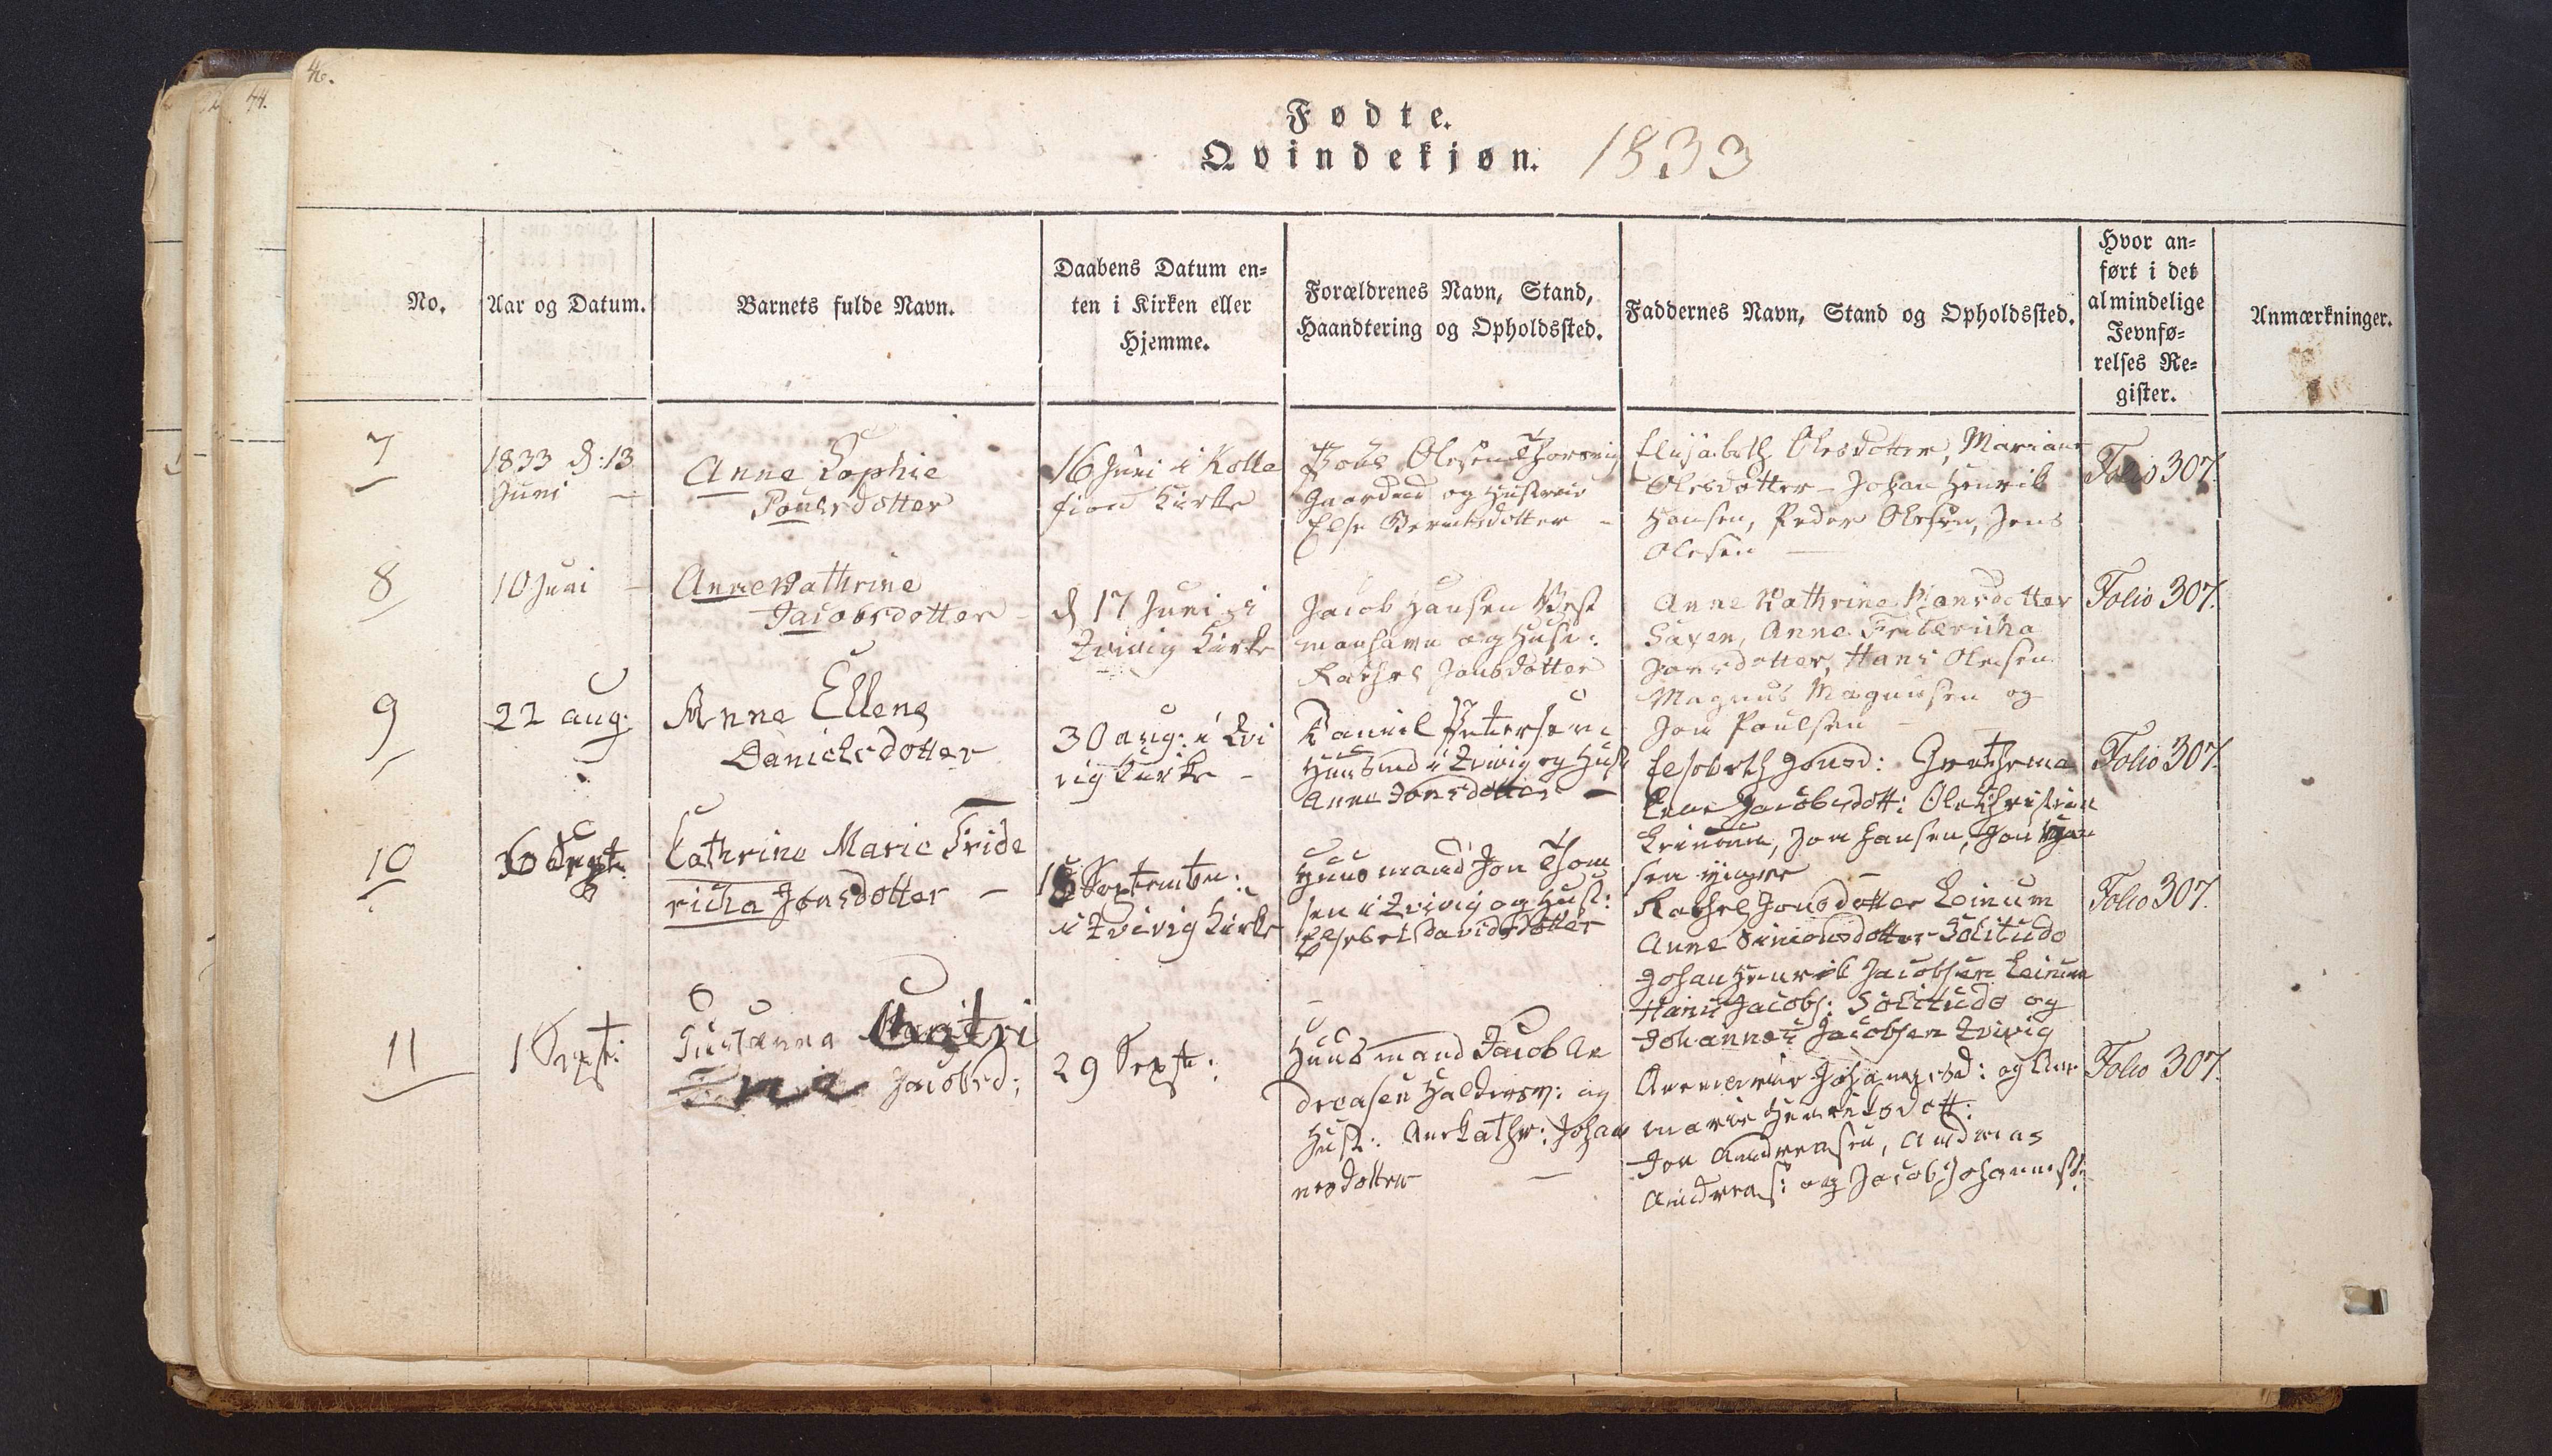 46.
44.
Fødte.
Qvindekjøn. 1833
No.
Aar og Datum.
Barnets fulde Navn.
Daabens Datum en-
ten i Kirken eller
Hjemme.
Forældrenes Navn, Stand,
Haandtering og Opholdssted.
Faddernes Navn, Stand og Opholdssted.
Hvor an-
ført i det
almindelige
Jevnfø-
relses Re-
gister.
Anmærkninger.
7
1833 d: 13
Juni
Anne Sophie
Poulsdotter
16 Juni i Kolle
fiord Kirke
Poul Olesen Thorsvig
Gaardmd og Hustrue
Else Berentsdotter
Elisabeth Olesdotter, Mariane
Olesdotter - Johan Henrik
Hansen, Peder Olesen, Jens
Olesen
Folio 307.
8
10 Juni
Anne Kathrine
Jacobsdotter
d 17 Juni i
Qvivig Kirke
Jacob Hansen Vest
manhavn og Hust:
Rachel Jonsdotter
Anne Kathrine Hansdotter
Saxen, Anne Fridericha
Jonsdotter, Hans Olesen
Magnus Magnusen og
Jon Poulsen
Folio 307.
9
22 aug:
Anne Ellene
Danielsdotter
30 aug: i Qvi
vig Kirke
Daniel Petersen
Huusmd i Qvivig og Hust
Anne Jonsdotter
Elsebeth Jonsd: Grethe
Lene Jacobsdott: Ole Christian
Leinum, Jon Hansen, Jon
sen yngre
Folio 307.
10
Sept.
Cathrine Marie Fride
richa Jonsdotter
15 September:
i Qvivig Kirke
Huusmand Jon Thom
sen i Qvivig og Hust:
Elsebet Davidsdotter
Rachel Jonsdotter Leinum
Anne Simonsdotter Solitudo
Johan Henrik Jacobsen Leinum
Hans Jacobs: Solitudo og
Johannes Jacobsen Qvivig
Folio 307.
11
1 Sept:
Susanna
Jacobsd:
29 Sept:
Huusmand Jacob An
dreasen Haldersv: og
Hust: Ane Kathr: Johan
nesdotter
Anemarie Johannesd: og Ane
marie Henriksdott:
Jon Andreasen, Andreas
Andreas: og Jacob Johannes:
Folio 307.